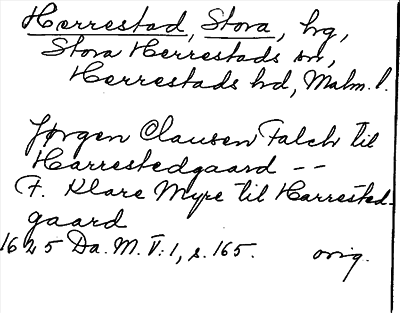 Herrestad, Stora, hg,
Stora Herrestads sn,
Herrestads hd, Malm. l.
Jørgen Clausen Falch til
Harrestedgaard --
F. Klare Myre til Harrested-
gaard
1625 Da. M. V:1, s. 165. orig.